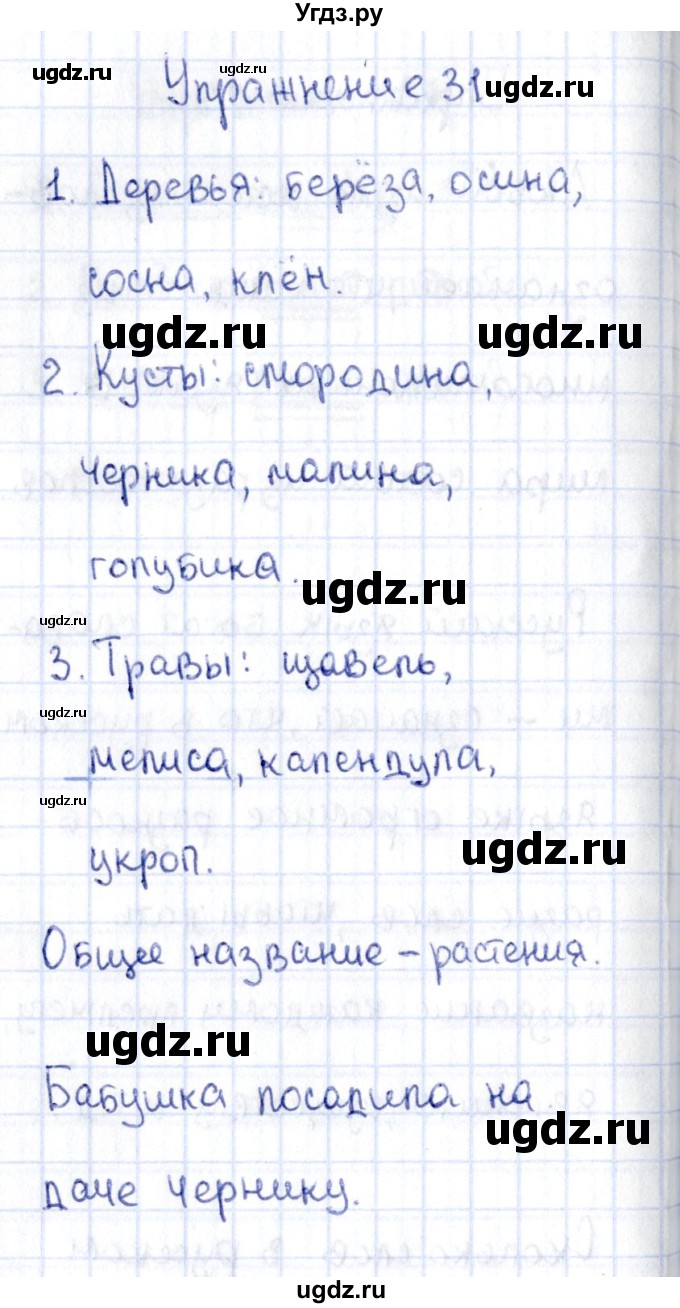 Угдз.ру
ugdz.ru
ugdz.ru
Упражнение 31
ugdz.ru
1. Деревья: берёза, осина,
сосна, клён.
ugdz.ru
ugdz.ru
2. Кусты: смородина,
черника, малина,
голубика.
ugdz.ru
ugdz.ru
3. Травы: щавель,
ugdz.ru
мелиса, календула,
ugdz.ru
ugdz.ru
укроп.
Общее название – растения.
ugdz.ru
Бабушка посадила на
ugdz.ru
даче чернику.
ugdz.ru